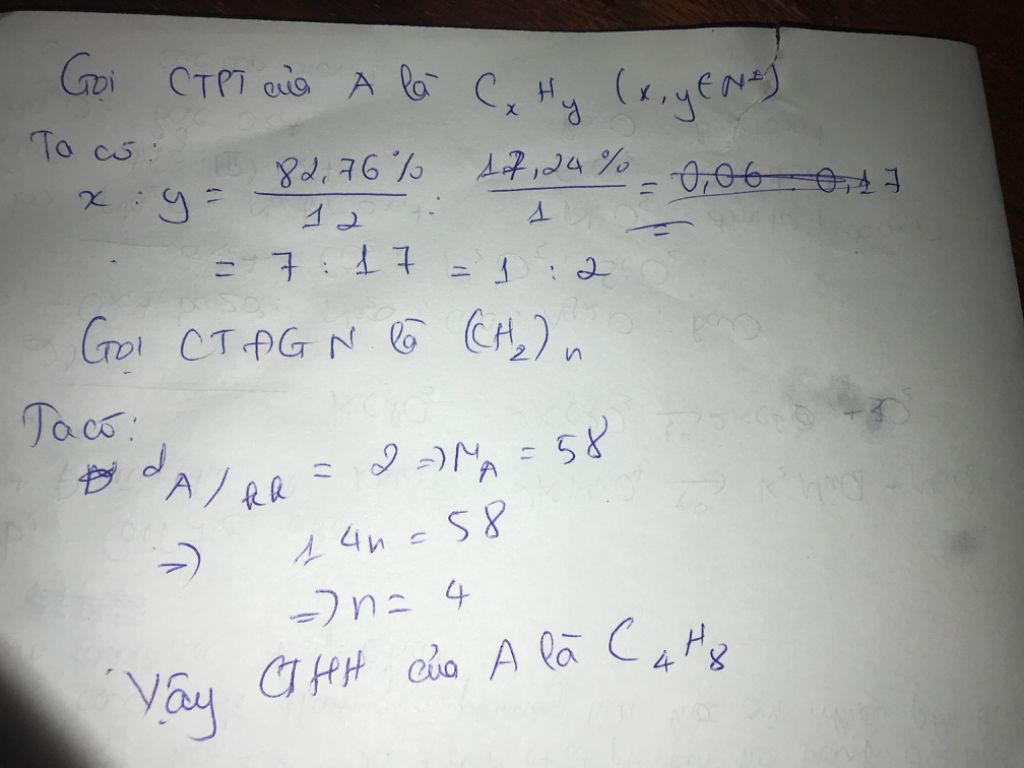 Gọi CTPT của A là CxHy (x,y ∈ N*)
Ta có:
x : y = 82,76%/12 : 17,24%/1 = 0,06 : 0,17
= 7 : 17 = 1 : 2
Gọi CTĐGN là (CH2)n
Ta có:
dA/kk = 2 => MA = 58
=> 14n = 58
=> n = 4
Vậy CTHH của A là C4H8